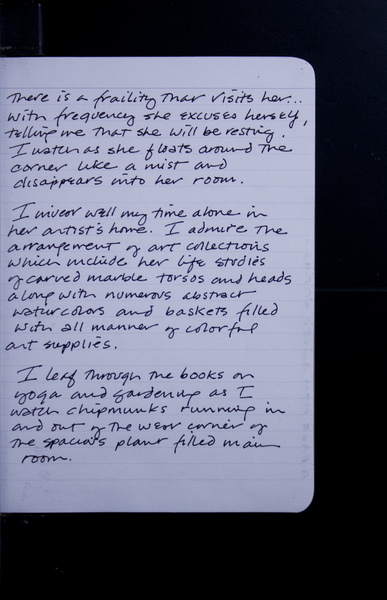 There is a fraility that visits her...
with frequency she excuses herself,
telling me that she will be resting.
I watch as she floats around the
corner like a mist and
disappears into her room.
I well my time alone in
her artist's home. I admire the
arrangement of art collections
which include her life studies
of carved marble torsos and heads
along with numerous abstract
watercolors and baskets filled
with all manner of colorful
art supplies.
I leaf through the books on
yoga and gardening as I
watch chipmunks running in
and out of the west corner of
the spacious plant filled main
room.